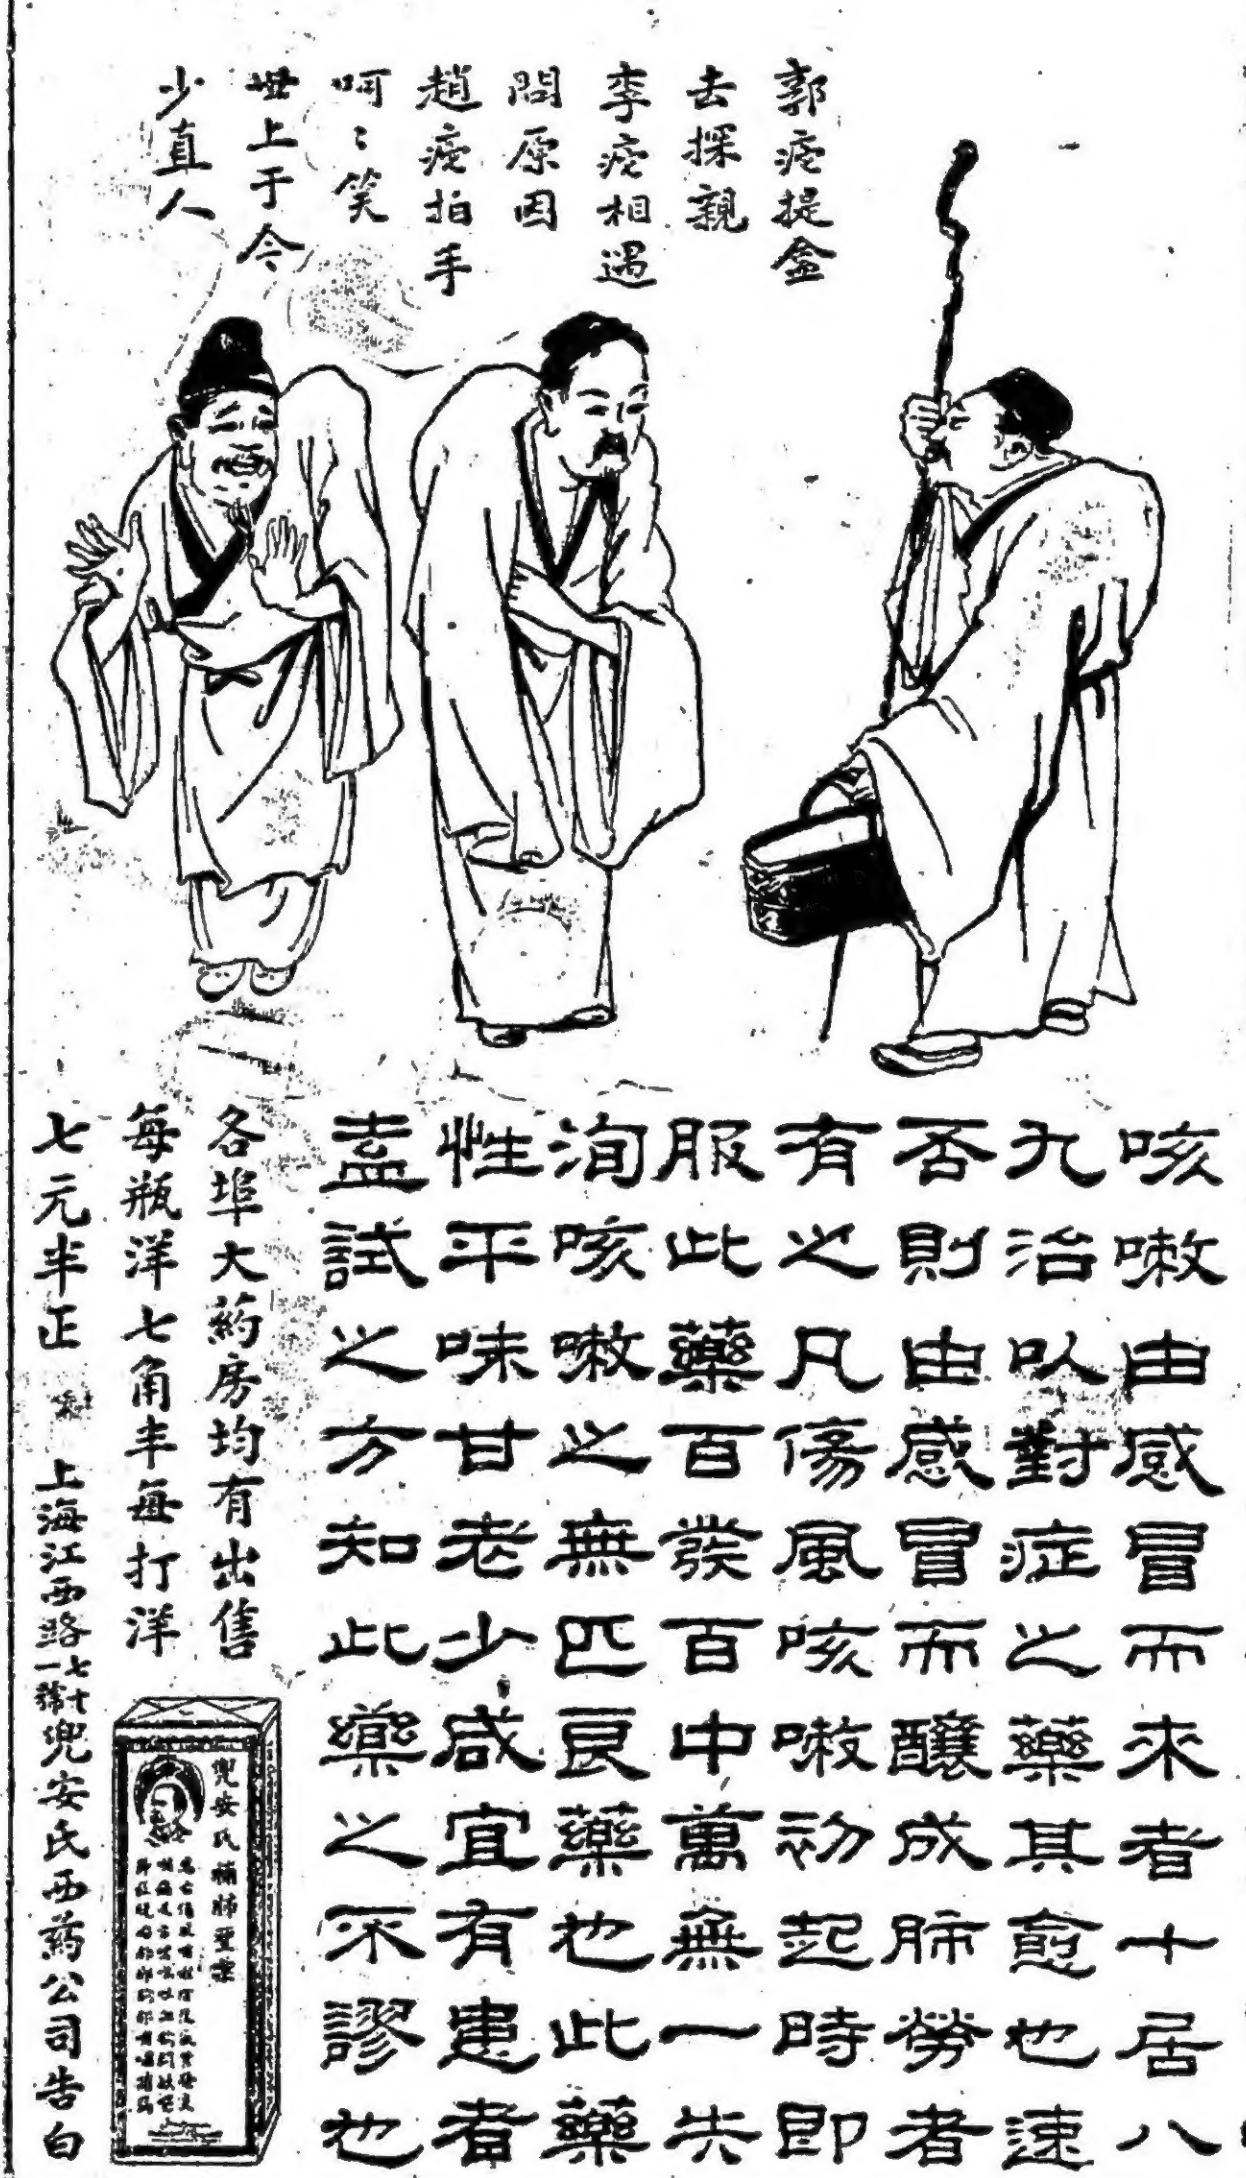 郭痴提盒
去探親
李痴相遇
問原因
趙痴拍手
呵〻笑
世上于今
少直人
咳嗽由感冒而來者十居八
九治以對症之藥其愈也速
否則由感冒而釀成肺勞者
有之凡傷風咳嗽初起時即
服此藥百發百中萬無一失
洵咳嗽之無匹良藥也此藥
性平味甘老少咸宜有患者
盍試之方知此藥之不謬也
各埠大药房均有出售
每瓶洋七角半每打洋
七元半正
上海江西路七十一號兜安氏西药公司告白
兜安氏補肺聖藥